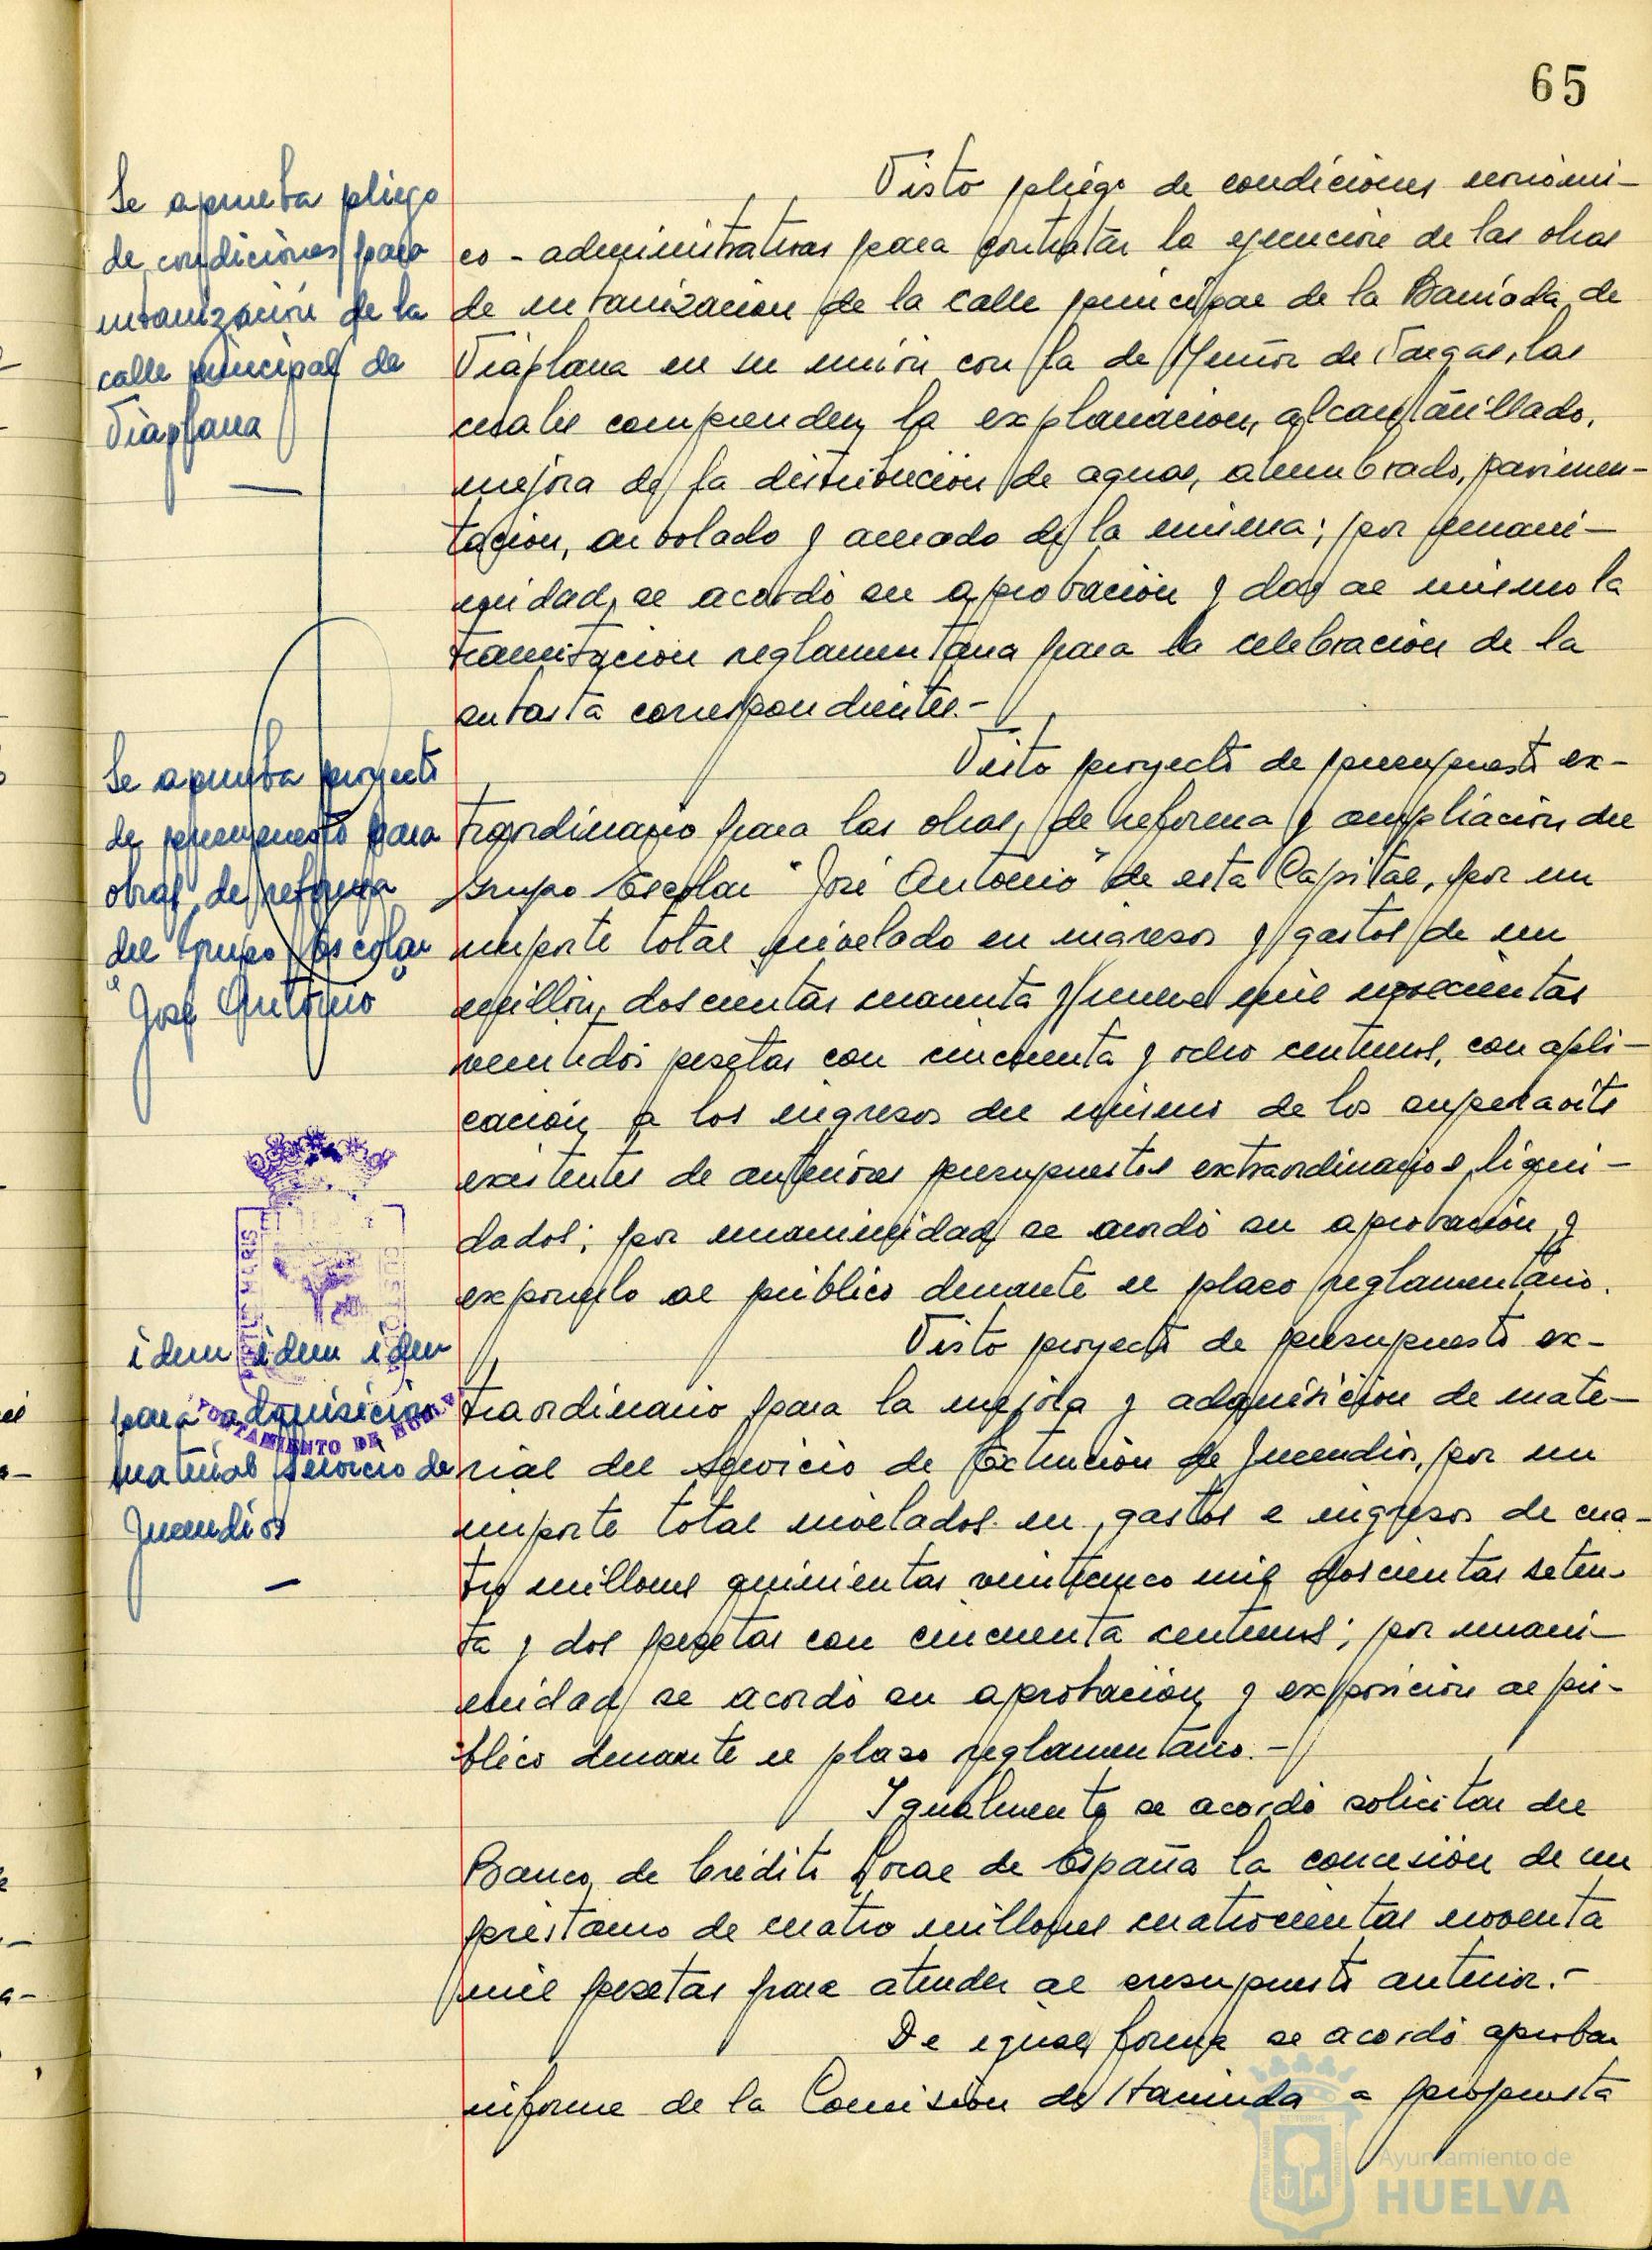 65
Se aprueba pliego
de condiciones para
urbanización de la
calle principal de
Viaplana
Visto pliego de condiciones económi-
co-administrativas para contratar la ejecución de las obras
de urbanización de la calle principal de la Barriada de
Viaplana en su unión con la de Muñoz de Vargas, las
cuales comprenden la explanación, alcantarillado,
mejora de la distribución de aguas, alumbrado, pavimen-
tación, arbolado y acerado de la misma; por unani-
midad, se acordó su aprobación y dar al mismo la
tramitación reglamentaria para la celebración de la
subasta correspondiente.-
Se aprueba proyecto
de presupuesto para
obras de reforma
del Grupo Escolar
"José Antonio"
Visto proyecto de presupuesto ex-
traordinario para las obras de reforma y ampliación del
Grupo Escolar "José Antonio" de esta Capital, por un
importe total nivelado en ingresos y gastos de un
millón, doscientas cuarenta y nueve mil novecientas
veintidós pesetas con cincuenta y ocho céntimos, con apli-
cación a los ingresos del mismo de los superávits
existentes de anteriores presupuestos extraordinarios liqui-
dados; por unanimidad se acordó su aprobación y
exponerlo al público durante el plazo reglamentario.
PORTUS MARIS
AYUNTAMIENTO DE HUELVA
idem idem idem
para adquisición
material Servicio de
Incendios
Visto proyecto de presupuesto ex-
traordinario para la mejora y adquisición de mate-
rial del Servicio de Extinción de Incendios, por un
importe total nivelados en gastos e ingresos de cua-
tro millones quinientas veinticinco mil doscientas seten-
ta y dos pesetas con cincuenta céntimos; por unani-
midad se acordó su aprobación y exposición al pú-
blico durante el plazo reglamentario.-
Igualmente se acordó solicitar del
Banco de Crédito Local de España la concesión de un
préstamo de cuatro millones cuatrocientas noventa
mil pesetas para atender al presupuesto anterior.-
De igual forma se acordó aprobar
informe de la Comisión de Hacienda a propuesta
Ayuntamiento de
HUELVA